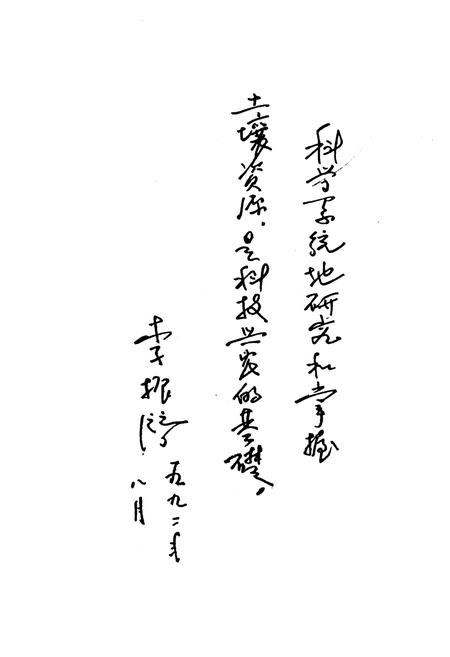 科学系统地研究和掌握
土壤资源，是科技兴农的基础。
李振声
一九九二年
八月